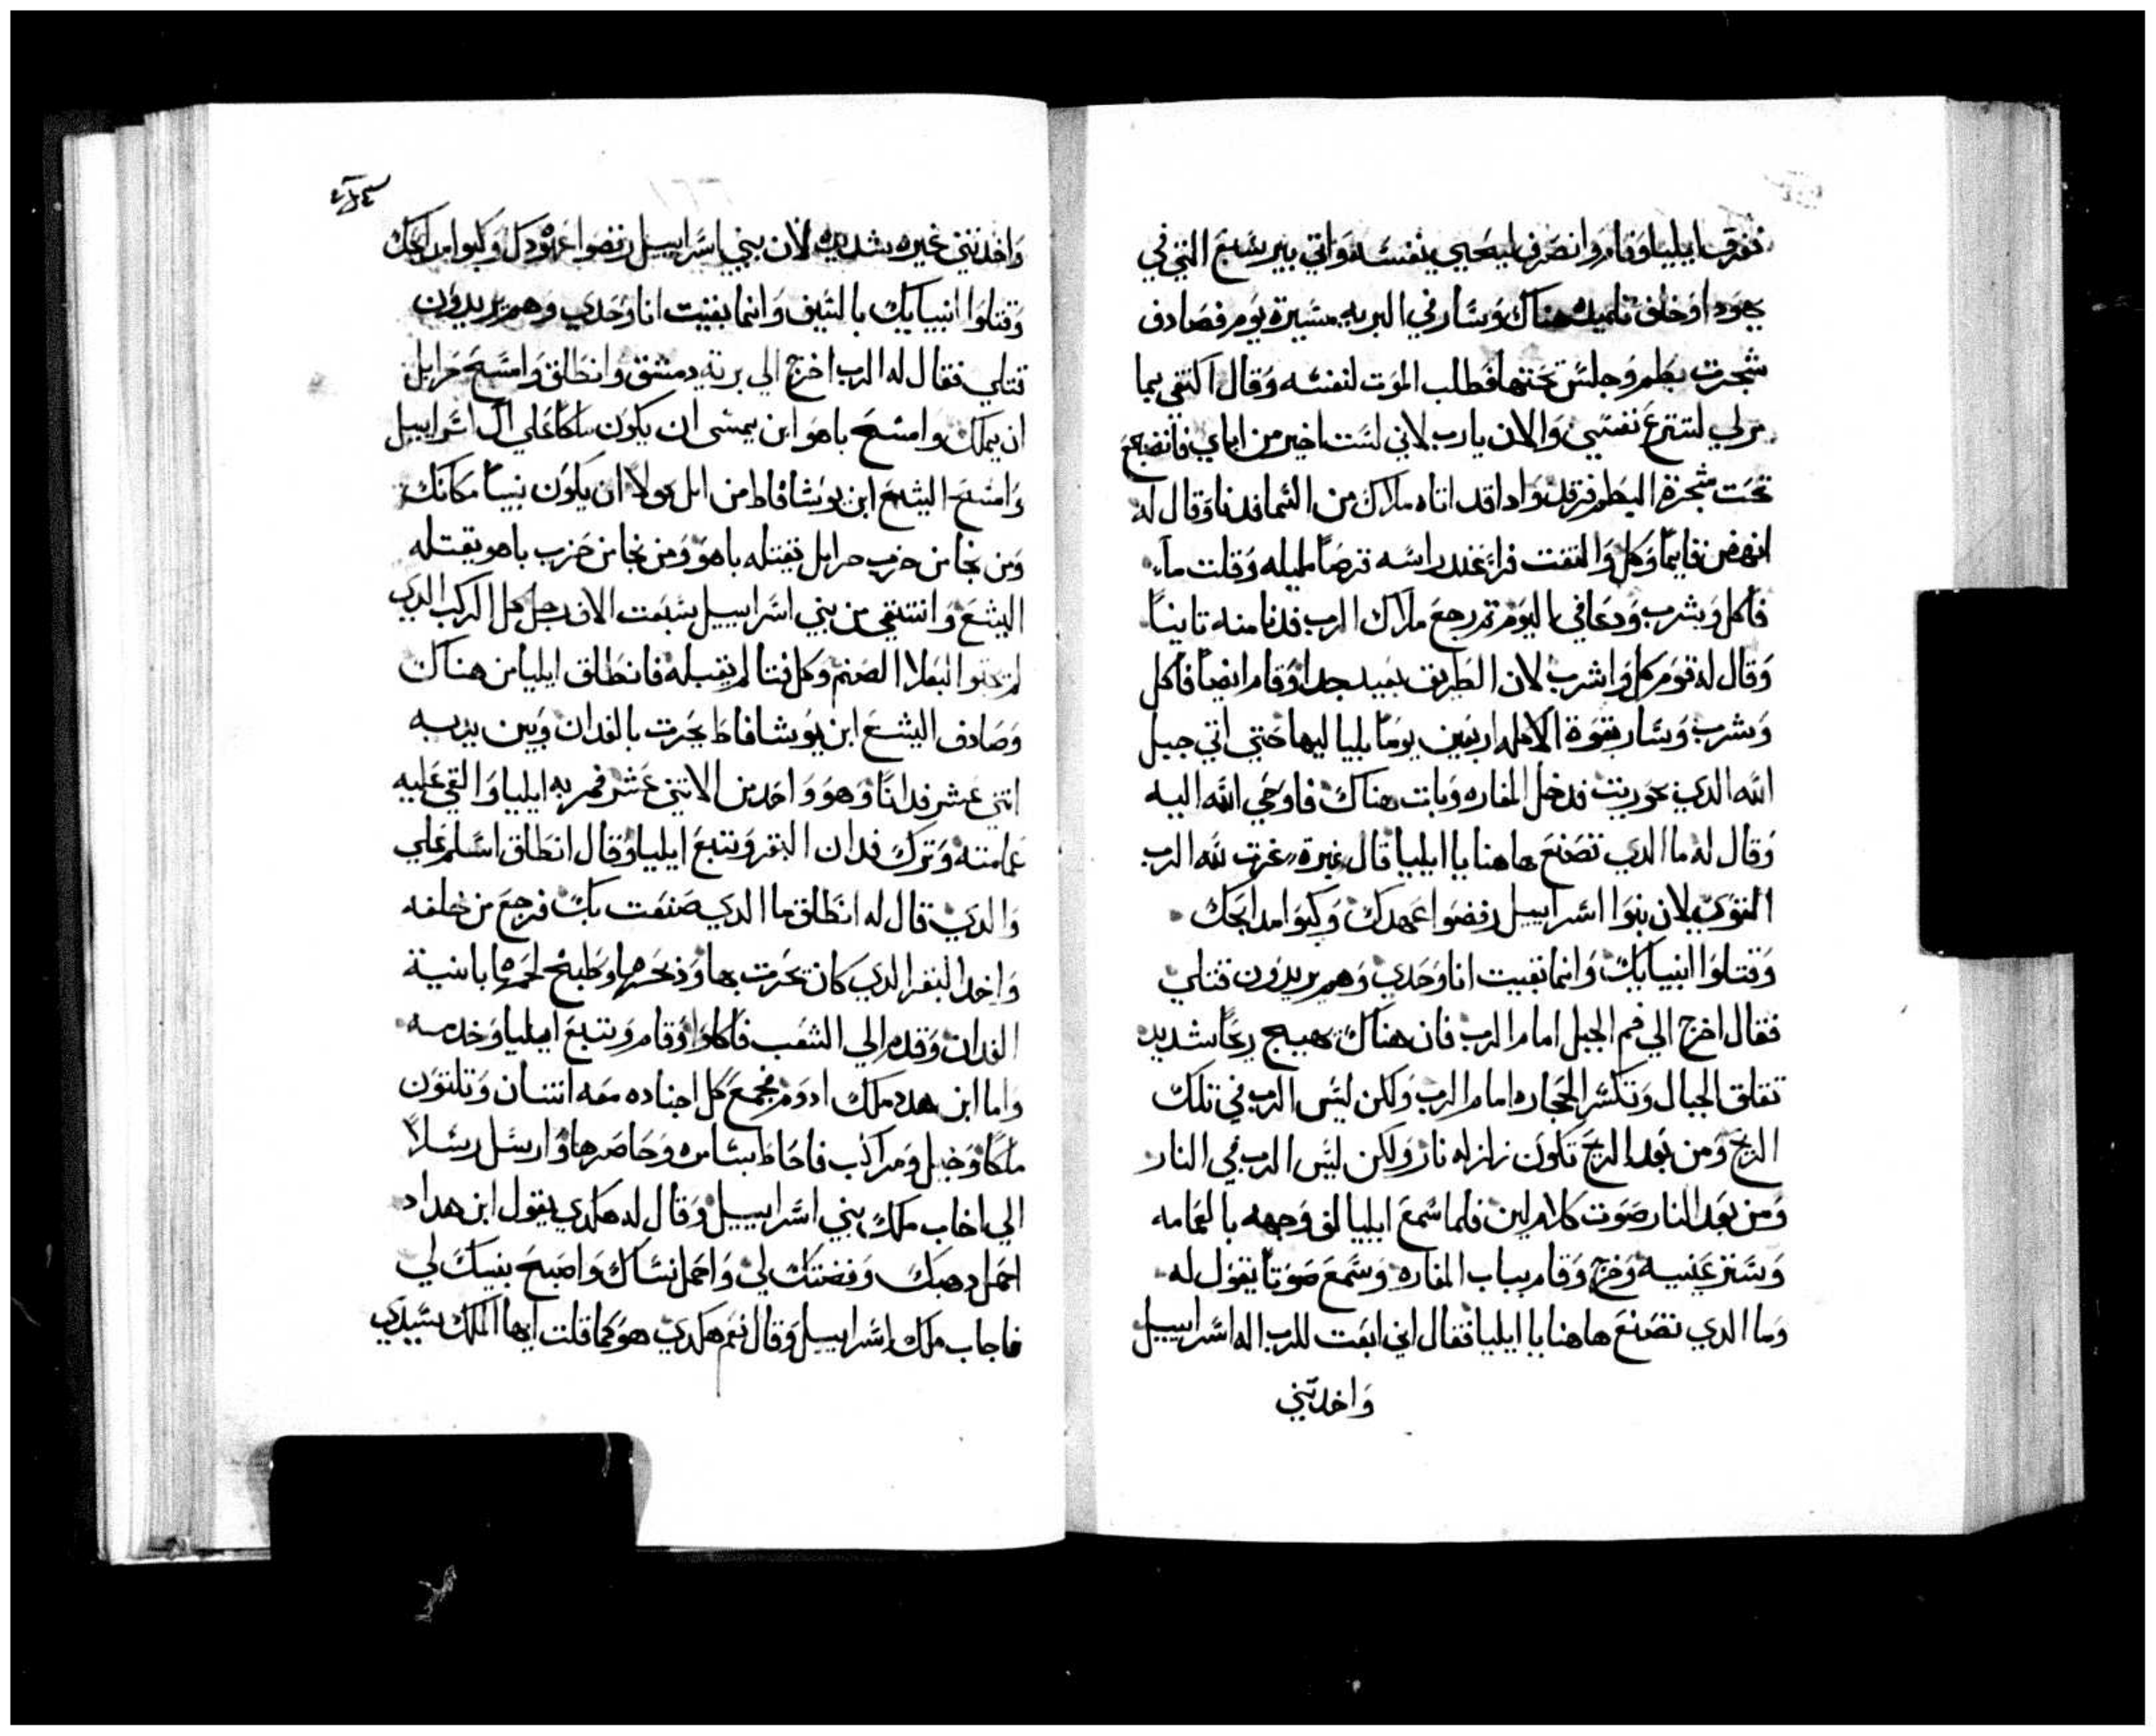 ففرق ايليا وقام وانصرف ليحيي بنفسه واتي بيرسبع التي في
يهودا وخلف تلميذه هناك وسار في البريه مسيرة يوم فصادف
شجرت بطم وجلس تحتها فطلب الموت لنفسه وقال اكتفي بما
مر لي لتنزع نفسي والان يارب لاني لست اخير من اباي فانضجع
تحت شجرة البطم فرقد واداقد اتاه ملاك من السما فدنا وقال له
انهض قايماً وكل والتفت فراى عند راسه قرصاً مليله وقلت مآء
فاكل وشرب ودعا في اليوم تم رجع ملاك الرب فدنا منه تانياً
وقال له قوم كل واشرب لان الطريق بعيد جدا وقام ايضاً فاكل
وشرب وسار بقوة الاكله اربعين يوماً بلياليها حتي اتي جبل
الله الدي بحوريت فدخل المغاره وبات هناك فاوحي الله اليه
وقال له ما الدي تصنع هاهنا يا ايليا قال غيرة غرت لله الرب
القوي لان بنوا اسراييل رفضوا عهدك وكبوا مدابحك
وقتلوا انبيايك وانما بقيت انا وحدي وهم يريدون قتلي
فقال اخرج الي فم الجبل امام الرب فان هناك يهيج ريحاً شديد
تفلق الجبال وتكسر الحجاره امام الرب ولكن ليس الرب في تلك
الريح ومن بعد الريح تكون زلزله نار ولكن ليس الرب في النار
ومن بعد النار صوت كلام لين فلما سمع ايليا لف وجهه بالعمامه
وستر عنييه وخرج وقام بباب المغاره وسمع صوتاً يقول له
وما الدي تصنع هاهنا يا ايليا فقال اني ابعت للرب اله اسراييل
واخدتني
واخدتني غيره شديده لان بني اسراييل رفضوا عهودك وكبوا مدابحك
وقتلوا انبيايك بالسيف وانما بقيت انا وحدي وهم يريدون
قتلي فقال له الرب اخرج الي برية دمشق وانطلق وامسح حزايل
ان يملك وامسح ياهو ابن يمشي ان يكون ملكاً علي ال اسراييل
وامسح اليشع ابن يوشافاط من ابل مولا ان يكون نبياً مكانك
ومن نجا من حزب حزايل يقتله ياهو ومن نجا من حزب ياهو يقتله
اليشع وانتقي من بني اسراييل سبعت الاف رجل كل الركب الدي
لم تحنوا لبعلا الصنم وكل فتا لم يقبله فانطلق ايليا من هناك
وصادف اليشع ابن يوشافاط يحرت بالفدان وبين يديه
اتني عشر فداناً وهو واحد من الاتني عشر فمر به ايليا والقي عليه
عمامته وترك فدان البقر وتبع ايليا وقال انطلق اسلم علي
والدي قال له انطلق ما الدي صنعت بك فرجع من خلفه
واخد البقر الدي كان يحرت بها وذبحها وطبخ لحمها بانية
الفدان وقدم الي الشعب فاكلوا وقام وتبع ايليا وخدمه
واما ابن هدد ملك ادوم فجمع كل اجناده معه اتنان وتلتون
ملكاً وخيل ومراكب فاحاط بسامره وحاصرها وارسل رسلاً
الي اخاب ملك بني اسراييل وقال له هكدي يقول ابن هداد
احمل دهبك وفضتك لي واحمل نساك واصبح بنيك لي
فاجاب ملك اسراييل وقال نعم هكدي هو كما قلت ايها الملك سيدي